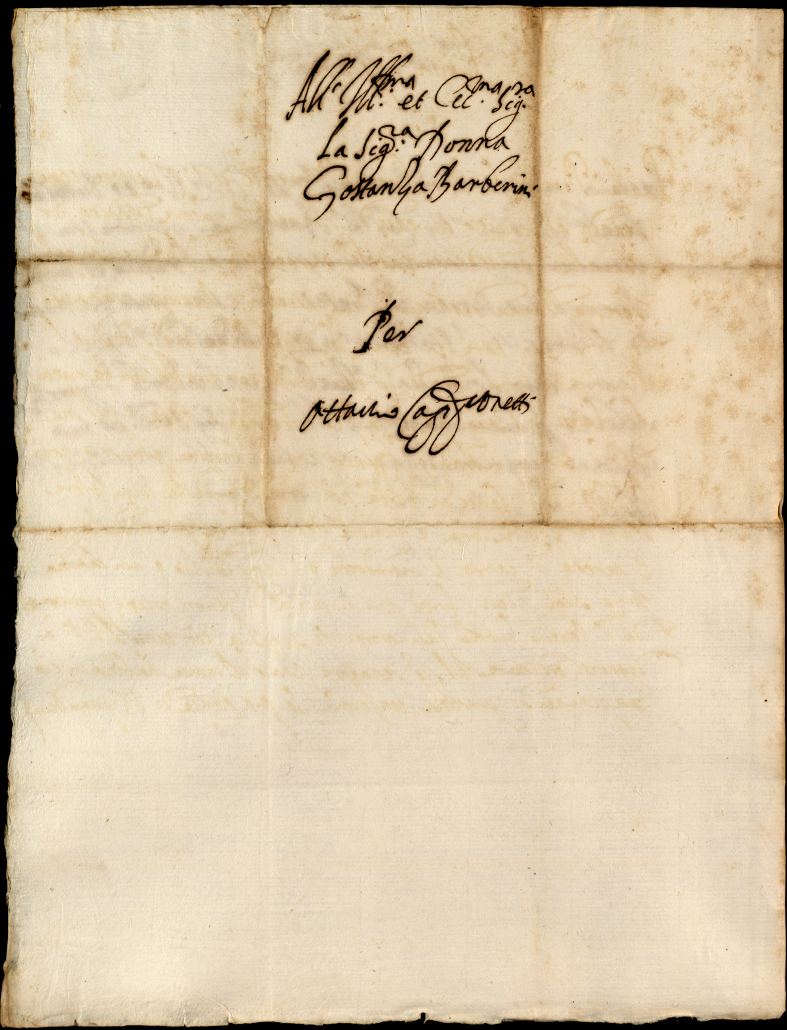 All' Ill.ma et Ecc.ma Sig.ra
La Sig.ra Donna
Gostanza Barberini
Per
Ottavio